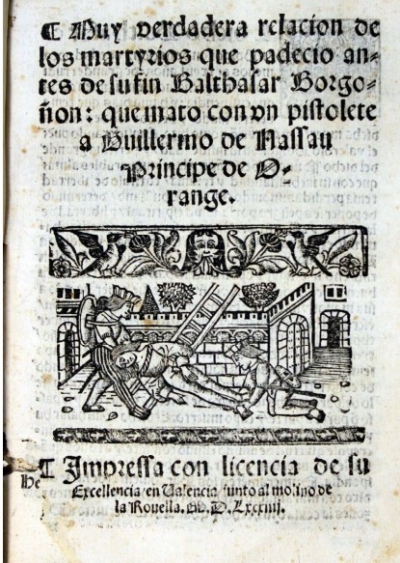 ¶ Muy verdadera relacion de
los martyrios que padecio an-
tes de su fin Balthasar Borgo-
ñon: que mato con vn pistolete
a Guillermo de Nassau
Principe de O-
range.
¶ Impressa con licencia de su
Excellencia en Valencia junto al molino de
la Rouella. M. D. Lxxxiiij.